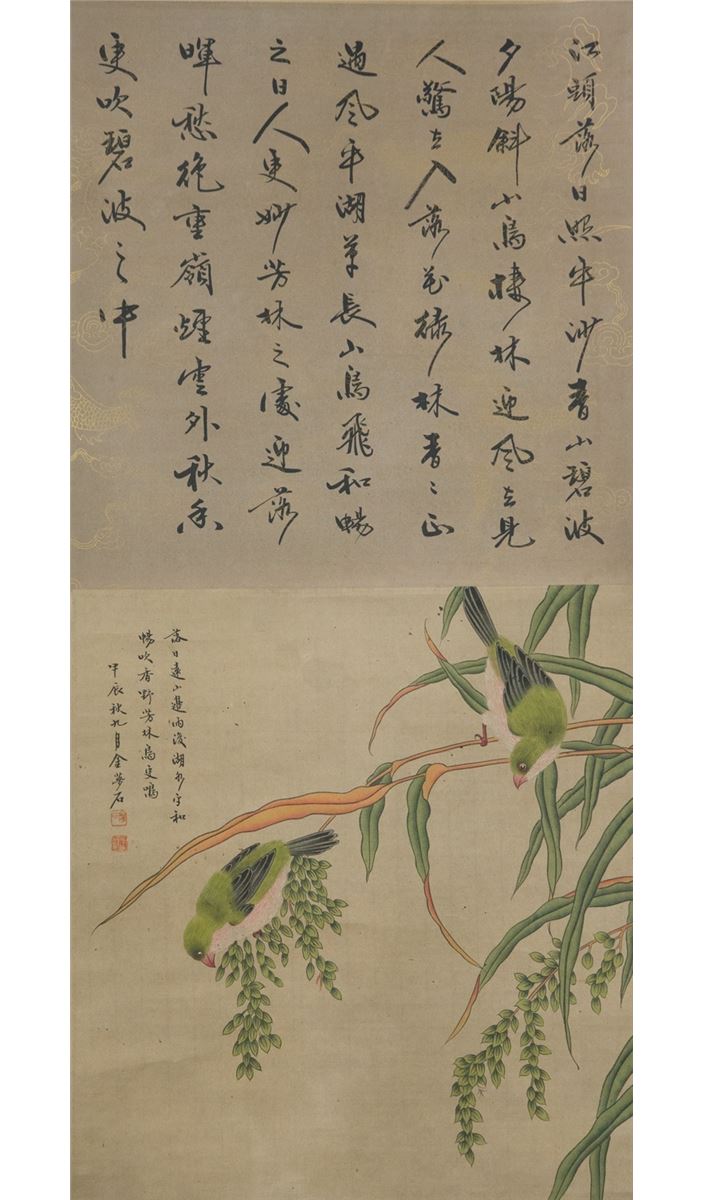 江頭落日照平沙青山碧波
夕陽斜小鳥棲林迎風立見
人驚立入落花綠林青々正
過風平湖草長小鳥飛和暢
之日人更妙芳林之處迎落
暉愁絶重嶺煙雲外秋香
更吹碧波之中
落日遠山邊雨後湖水平和
暢吹香野芳林鳥更鳴
甲辰秋九月金夢石